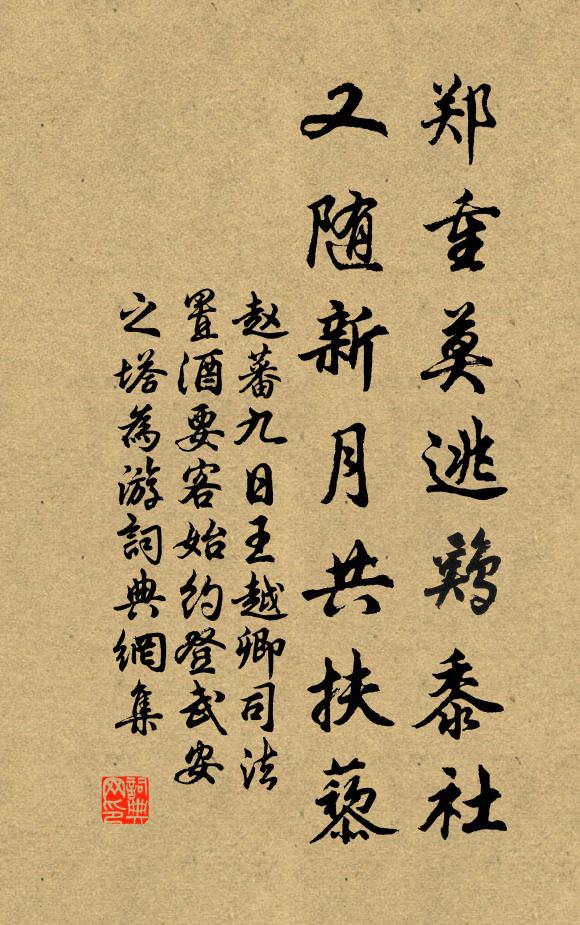 郑重莫逃鸡黍社
又随新月共扶藜
赵蕃九日王越卿司法
置酒要客始约登武安
之塔為游詞典網集
詞典网印